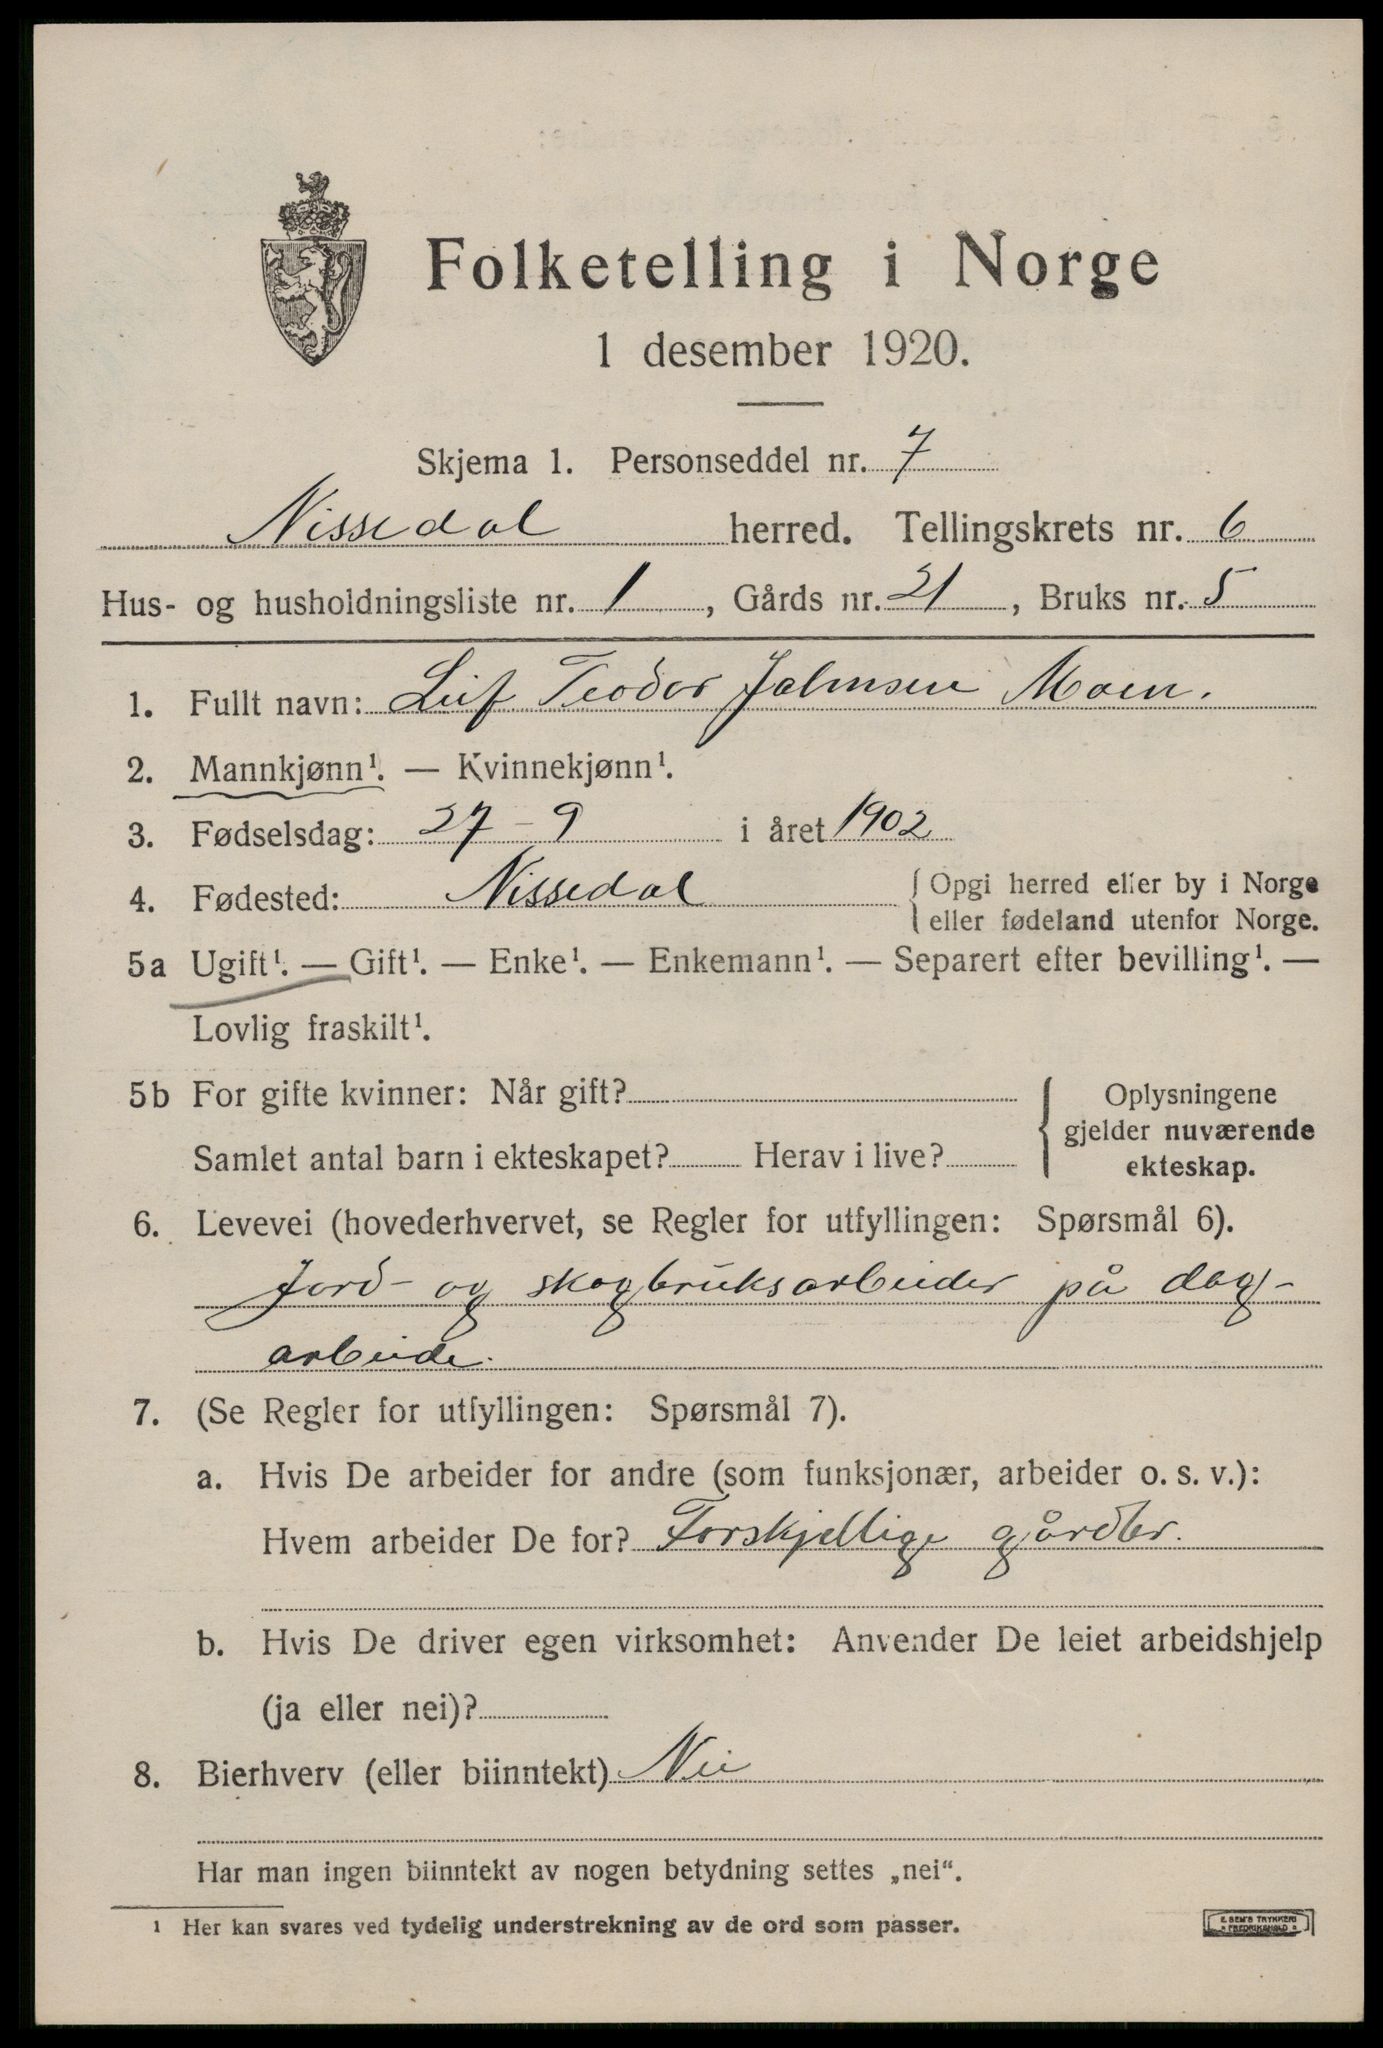 Folketelling i Norge
1 desember 1920.
Skjema 1. Personseddel nr. 7
Nissedal herred. Tellingskrets nr. 6
Hus- og husholdningsliste nr. 1, Gårds nr. 21, Bruks nr. 5
1. Fullt navn: Leif Teodor Jalmsen Moen.
2. Mannkjønn¹. — Kvinnekjønn¹.
3. Fødselsdag: 27-9 i året 1902
4. Fødested: Nissedal { Opgi herred eller by i Norge
eller fødeland utenfor Norge.
5a Ugift¹. — Gift¹. — Enke¹. — Enkemann¹. — Separert efter bevilling¹. —
Lovlig fraskilt¹.
5b For gifte kvinner: Når gift? { Oplysningene
gjelder nuværende
Samlet antal barn i ekteskapet? Herav i live? ekteskap.
6. Levevei (hovederhvervet, se Regler for utfyllingen: Spørsmål 6).
Jord- og skogbruksarbeider på dag-
arbeide.
7. (Se Regler for utfyllingen: Spørsmål 7).
a. Hvis De arbeider for andre (som funksjonær, arbeider o. s. v.):
Hvem arbeider De for? Forskjellige gårdbr.
b. Hvis De driver egen virksomhet: Anvender De leiet arbeidshjelp
(ja eller nei)?
8. Bierhverv (eller biinntekt) Nei
Har man ingen biinntekt av nogen betydning settes „nei“.
¹ Her kan svares ved tydelig understrekning av de ord som passer.
E. SEM'S TRYKKERI
FREDRIKSHALD